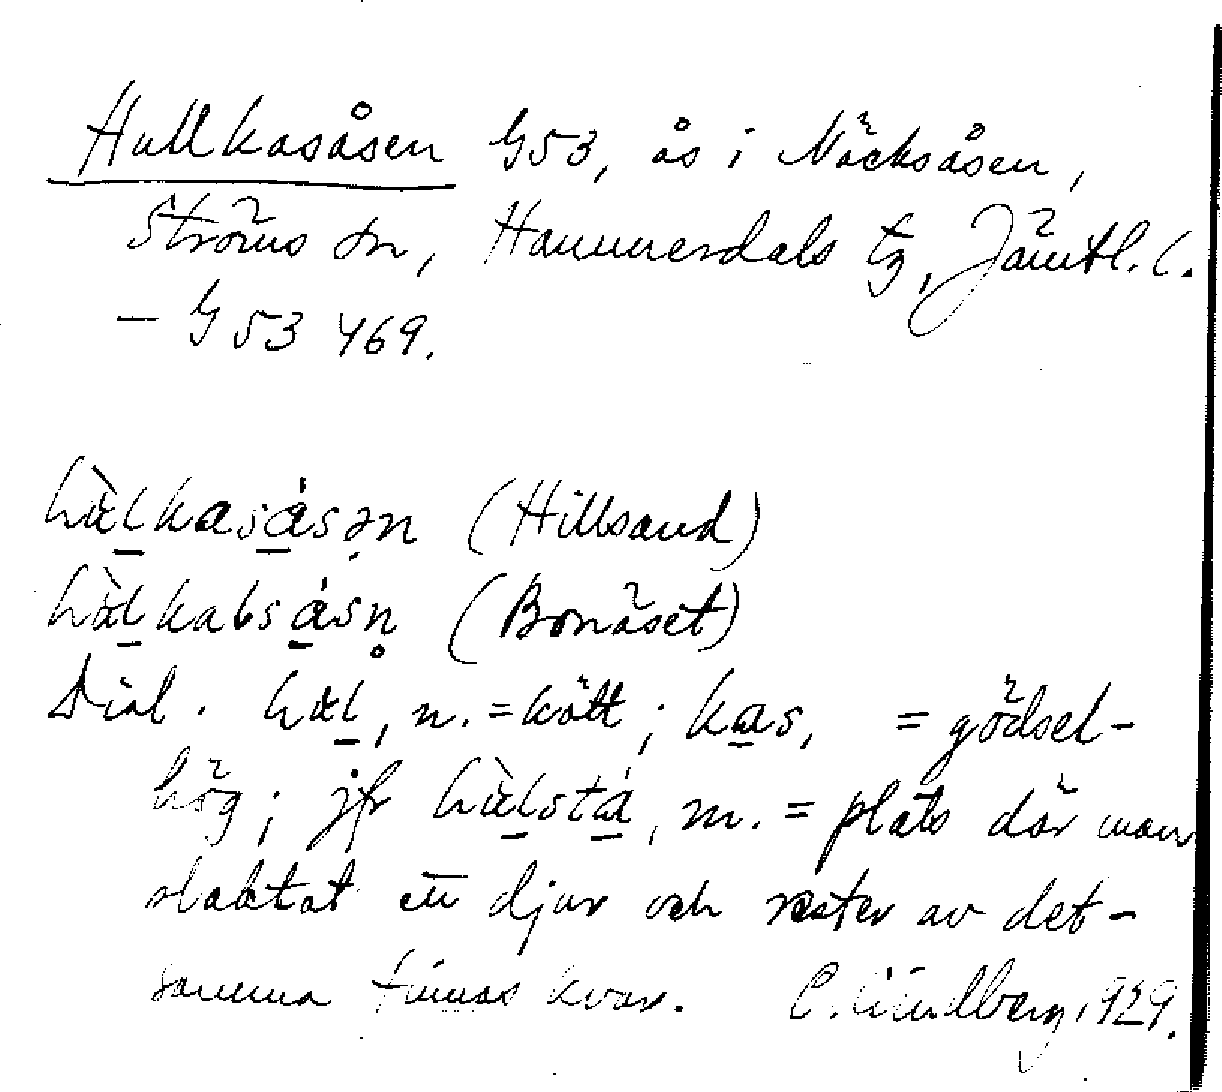 Hullkasåsen G53, ås i Näcksåsen,
Ströms sn, Hammerdals tg, Jämtl. l.
– G53 469.
hùlkasåsən (Hillsand)
kabsåsn̥ (Bonäset)
Dial. hul, n. = kött; kas, = gödsel-
hög; jfr hùlstå, m. = plats där man
slaktat ett djur och rester av det-
samma finnas kvar. C. Lindberg 1929.